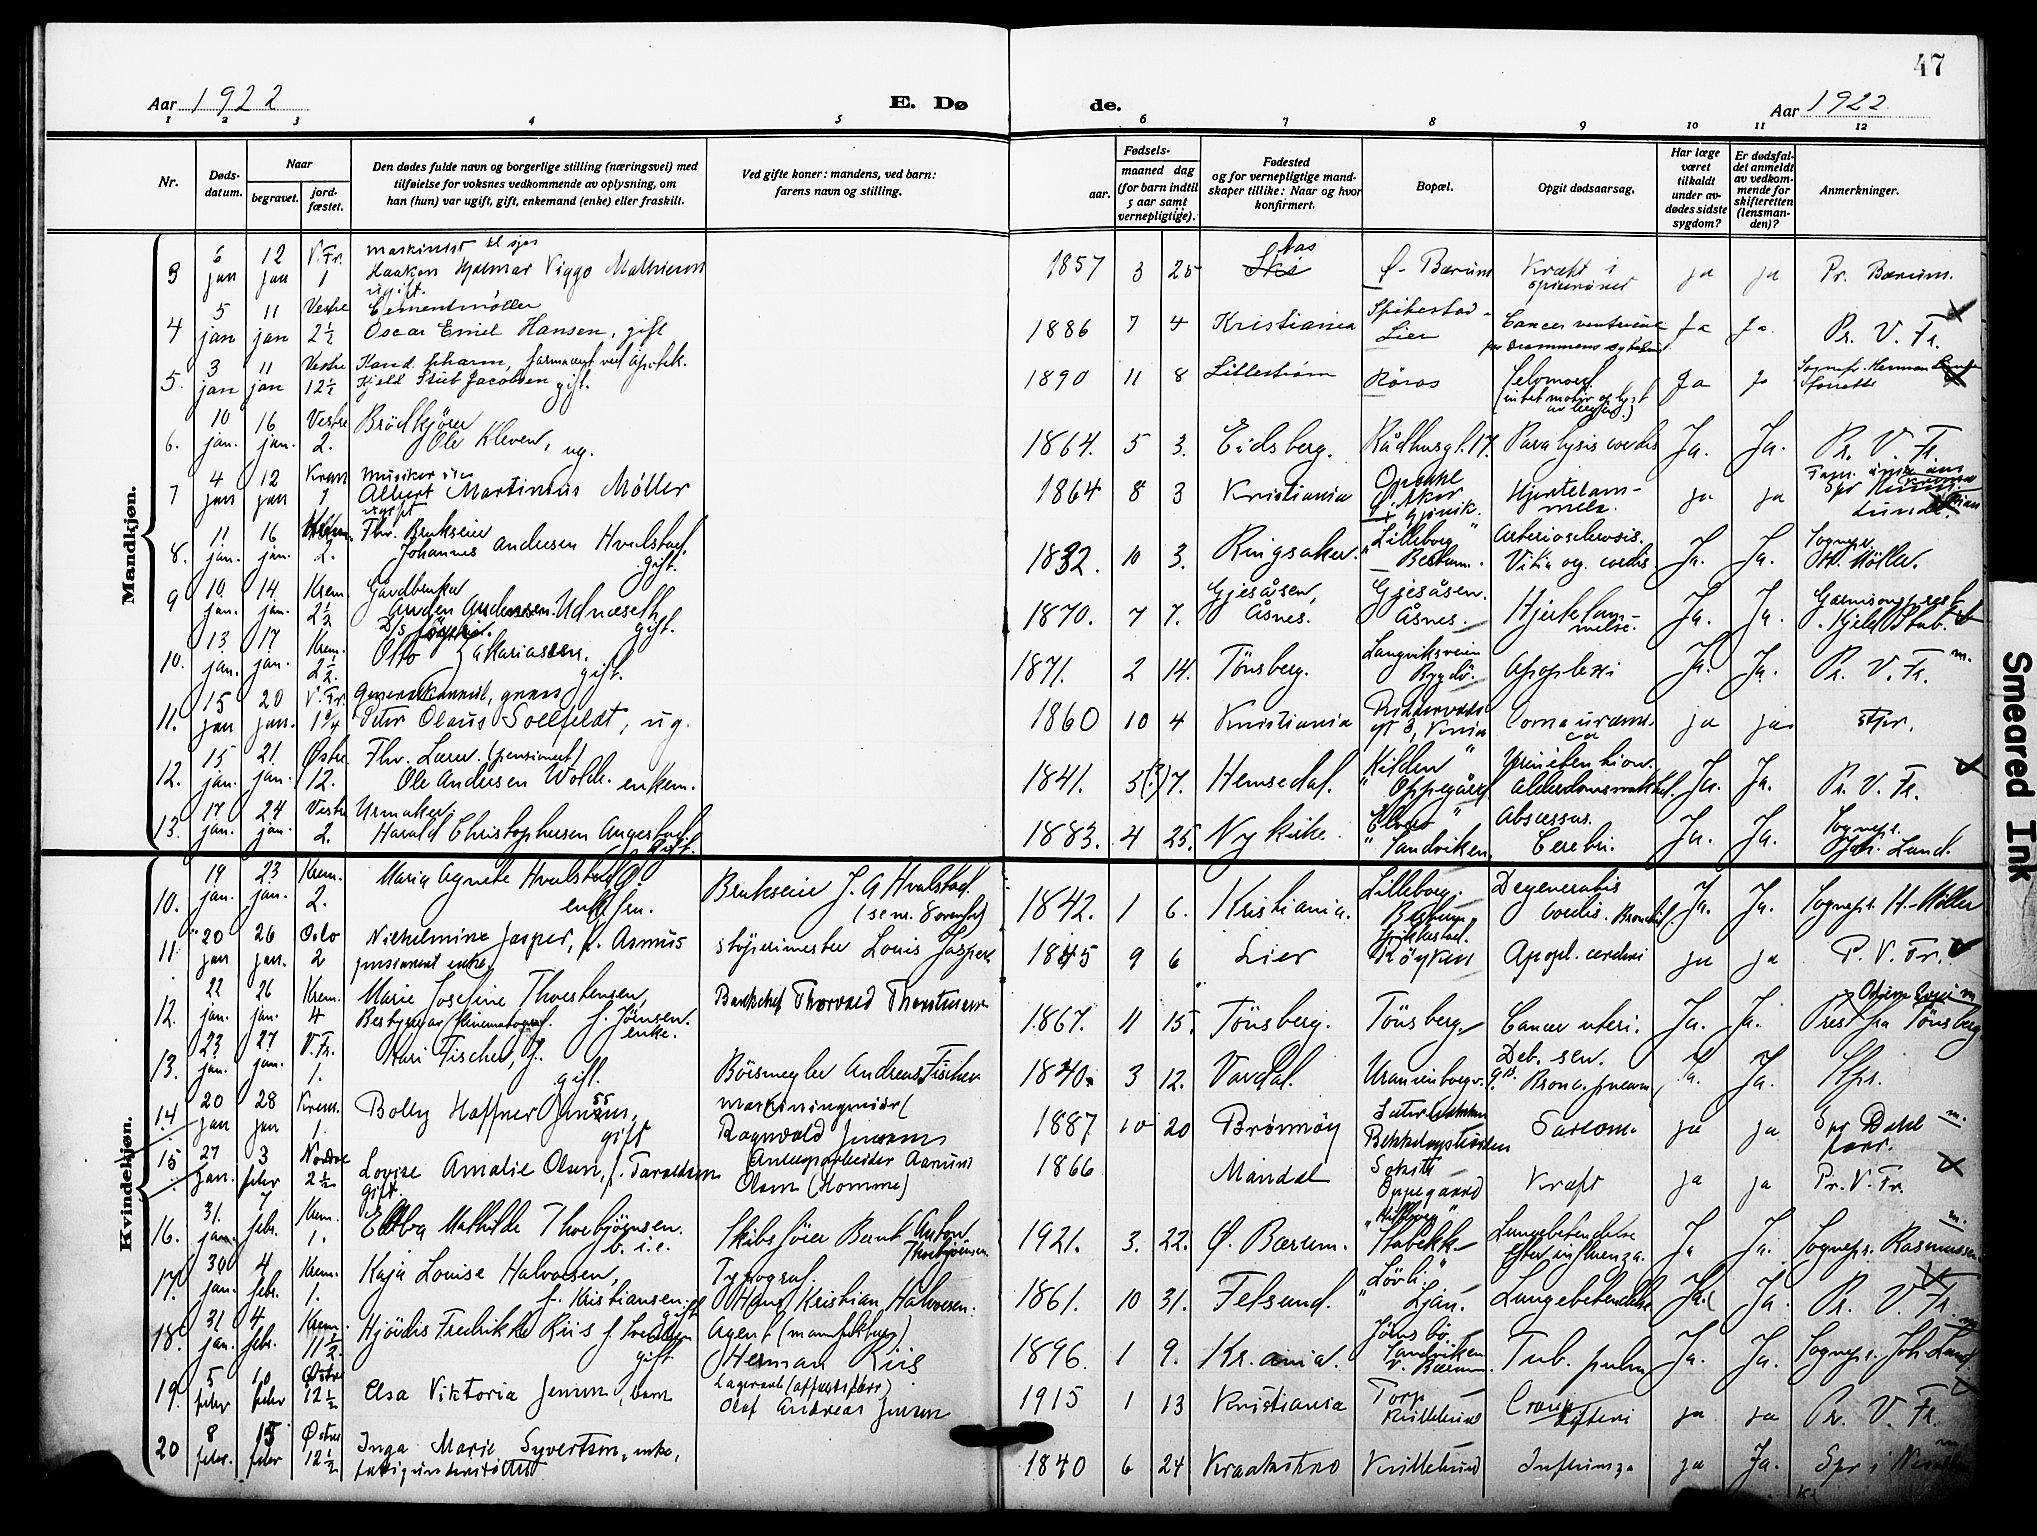 47
Aar 1922
E. Dø
de.
Aar 1922
1 2 3 4 5 6 7 8 9 10 11 12
Nr.
Døds-
datum.
Naar
begravet.
jord-
fæstet.
Den dødes fulde navn og borgerlige stilling (næringsvei) med
tilføielse for voksnes vedkommende av oplysning, om
han (hun) var ugift, gift, enkemand (enke) eller fraskilt.
Ved gifte koner: mandens, ved barn:
farens navn og stilling.
Fødsels-
aar.
maaned dag
(for barn indtil
5 aar samt
vernepligtige).
Fødested
og for vernepligtige mand-
skaper tillike: Naar og hvor
konfirmert.
Bopæl.
Opgit dødsaarsag.
Har læge
været
tilkaldt
under av-
dødes sidste
sygdom?
Er dødsfal-
det anmeldt
av vedkom-
mende for
skifteretten
(lensman-
den)?
Anmerkninger.
Mandkjøn.
3 6 jan 12 jan V. Fr. 1 Maskinist til sjøs
Haakon Hjalmar Viggo Mathiesen
ugift. 1857 3 25 Aas Ø. Bærum Kræft i spiserøret ja ja Pr. Bærum.
4 5 jan 11 jan Vestre 2½ Cementmøller
Oscar Emil Hansen, gift 1886 7 4 Kristiania Spikestad - Lier Cancer ventriculi
Drammens sykehus Ja Ja. Pr. V. Fr.
5. 3 jan 11 jan Vestre 12½ Kand. pharm, farmaceut ved Apotek.
Kjeld Stub Jacobsen gift. 1890 11 8 Lillestrøm Røros Selvmord
(intet motiv oplyst) Ja Ja Sognepr. Herman
6. 10 jan. 16 jan. Vestre 2. Brödkjører
Ole Kleven, ug. 1864. 5 3. Eidsberg. Rådhusgt. 17. Paralysis cordis Ja. Ja. Pr. V. Fr.
7 4 jan 12 jan Krem 1 Musiker
Albert Martinius Møller
ugift 1864 8 3 Kristiania Opsahl
Ø. Aker Hjertelam-
melse. ja ja Lunde.
8. 11 jan. 16 jan. Krem. 2. Fhv. Brukseier
Johannes Andersen Hvalstad.
gift. 1832. 10 3. Ringsaker. "Lilleborg"
Bestum. Arteriosclerosis.
Vitia og. cordis. Ja. Ja. Sognepr.
H. Møller.
9 10 jan. 14 jan. Krem. 2½ Gårdbruker
Anders Andersen Udnæseth
gift. 1870. 7 7. Gjesåsen,
Åsnes. Gjesåsen.
Åsnes. Hjertelam-
melse. Ja. Ja. Garnisonsprest
Kjeld Stub.
10. 13 jan. 17 jan. Krem. 2½.
Otto Zakariassen.
gift. 1871. 2 14. Tönsberg. Langviksveien
Bygdö. Apoplexi Ja. Ja. Pr. V. Fr.
11. 15 jan 20 jan. V. Fr. 1¾ Generalkonsul, gross
Peter Olaus Sollfeldt, ug. 1860 10 4 Kristiania gt 3, Krnia Coma uræmi-
ca ja ja Stpr.
12. 15 jan. 21. jan. Østre 12. Fhv. Lærer. (pensionert)
Ole Andersen Wold. enkem. 1841. 5(?) 7. Hemsedal. "Kilden"
Oppegård Urinretention.
Alderdomssvakhet. Ja. Ja. Pr. V. Fr.
13. 17 jan. 24 jan. Vestre 2. Urmaker
Harald Christophersen Angestad.
gift. 1883. 4 25. Nykirke.
Sandviken. Abscessus.
Cerebri. Ja. Ja. Sognepr.
Joh. Lund.
Kvindekjøn.
10. 19 jan. 23 jan. Krem. 2. Maria Agnete Hvalstad
enkefru. Brukseier J. A Hvalstad. 1842. 1 6. Kristiania. Lilleborg.
Bestum. Degeneratio
cordis. Bronchit. Ja. Ja. Sognepr. H. Møller
11. 20 jan 26 jan. Oslo 2 Wilhelmine Jasper, f. Asmus
pensionert enke, støperimester Louis Jasper 1845 9 6 Lier Spikkestad.
Røyken Apopl. cerebri ja ja P. V. Fr.
12. 22 jan. 26 jan. Krem. 4 Marie Josefine Thorstensen,
Bestyrer av Kinematograf. f. Jörnsen.
enke. Bankchef Thorvald Thorstensen 1867. 11 15. Tönsberg. Tönsberg. Cancer uteri. Ja. Ja. Prest fra Tönsberg
13. 23 jan. 27 jan. V. Fr. 1. Kari Fischer, f.
gift. Börsmegler Andreas Fischer 1840. 3 12. Vardal. Uranienborgv. Deb. sen.
Bronc. pneum. Ja. Ja. Stpr.
14 20 jan 28 jan Krem. 1. Bolly Haffner Jenssen,
gift maskiningeniør
Ragnvald Jenssen 1887 10 20 Brønnøy
Bekkelagshøiden Sarcom. ja ja Spr Dahl
15 27 jan. 3 febr Nordre 2½ Lovise Amalie Olsen, f. Taraldsen
gift. Anlegsarbeider Aanund
Olsen (Homme) 1866 Mandal
Oppegaard Kræft ja ja Pr. V. Fr.
16. 31. jan. 7 febr. Krem. 1. Ebba Mathilde Thorbjörnsen.
b. i. e. Skibsfører Bernt Anton
Thorbjörnsen. 1921. 3. 22. Ø. Bærum.
Stabekk Lungebetendelse
efter influenza. Ja Ja. Sognepr. Rasmussen
17. 30 jan. 4 febr. Krem. 1. Kaja Louise Halvorsen,
f. Kristiansen. gift Typograf.
Hans Kristian Halvorsen. 1861. 10 31. Felsund.
Ljan. Lungebetendelse Ja. Ja. Pr. V. Fr.
18. 31 jan. 4. febr. Krem. 11½. Hjördis Fredrikke Riis f.
gift Agent
Herman Riis 1896. 1 9. Kr.ania.
Sandviken
V. Bærum. Tub. pulm Ja. Ja. Sognepr. Joh. Lund
19. 5 febr 10 febr Østre 12½ Elsa Viktoria Jensen, barn Lagerarb
Olaf Andreas Jensen 1915 1 13 Kristiania Torp
Croup
Difteri ja ja Pr. V. Fr.
20 8 febr. 15 febr Østre 12½ Inga Marie Syvertsen, enke,
fattigunderstøttet 1840 6 24 Kraakstad Influenza ja Ja. Spr i
Smeared Ink